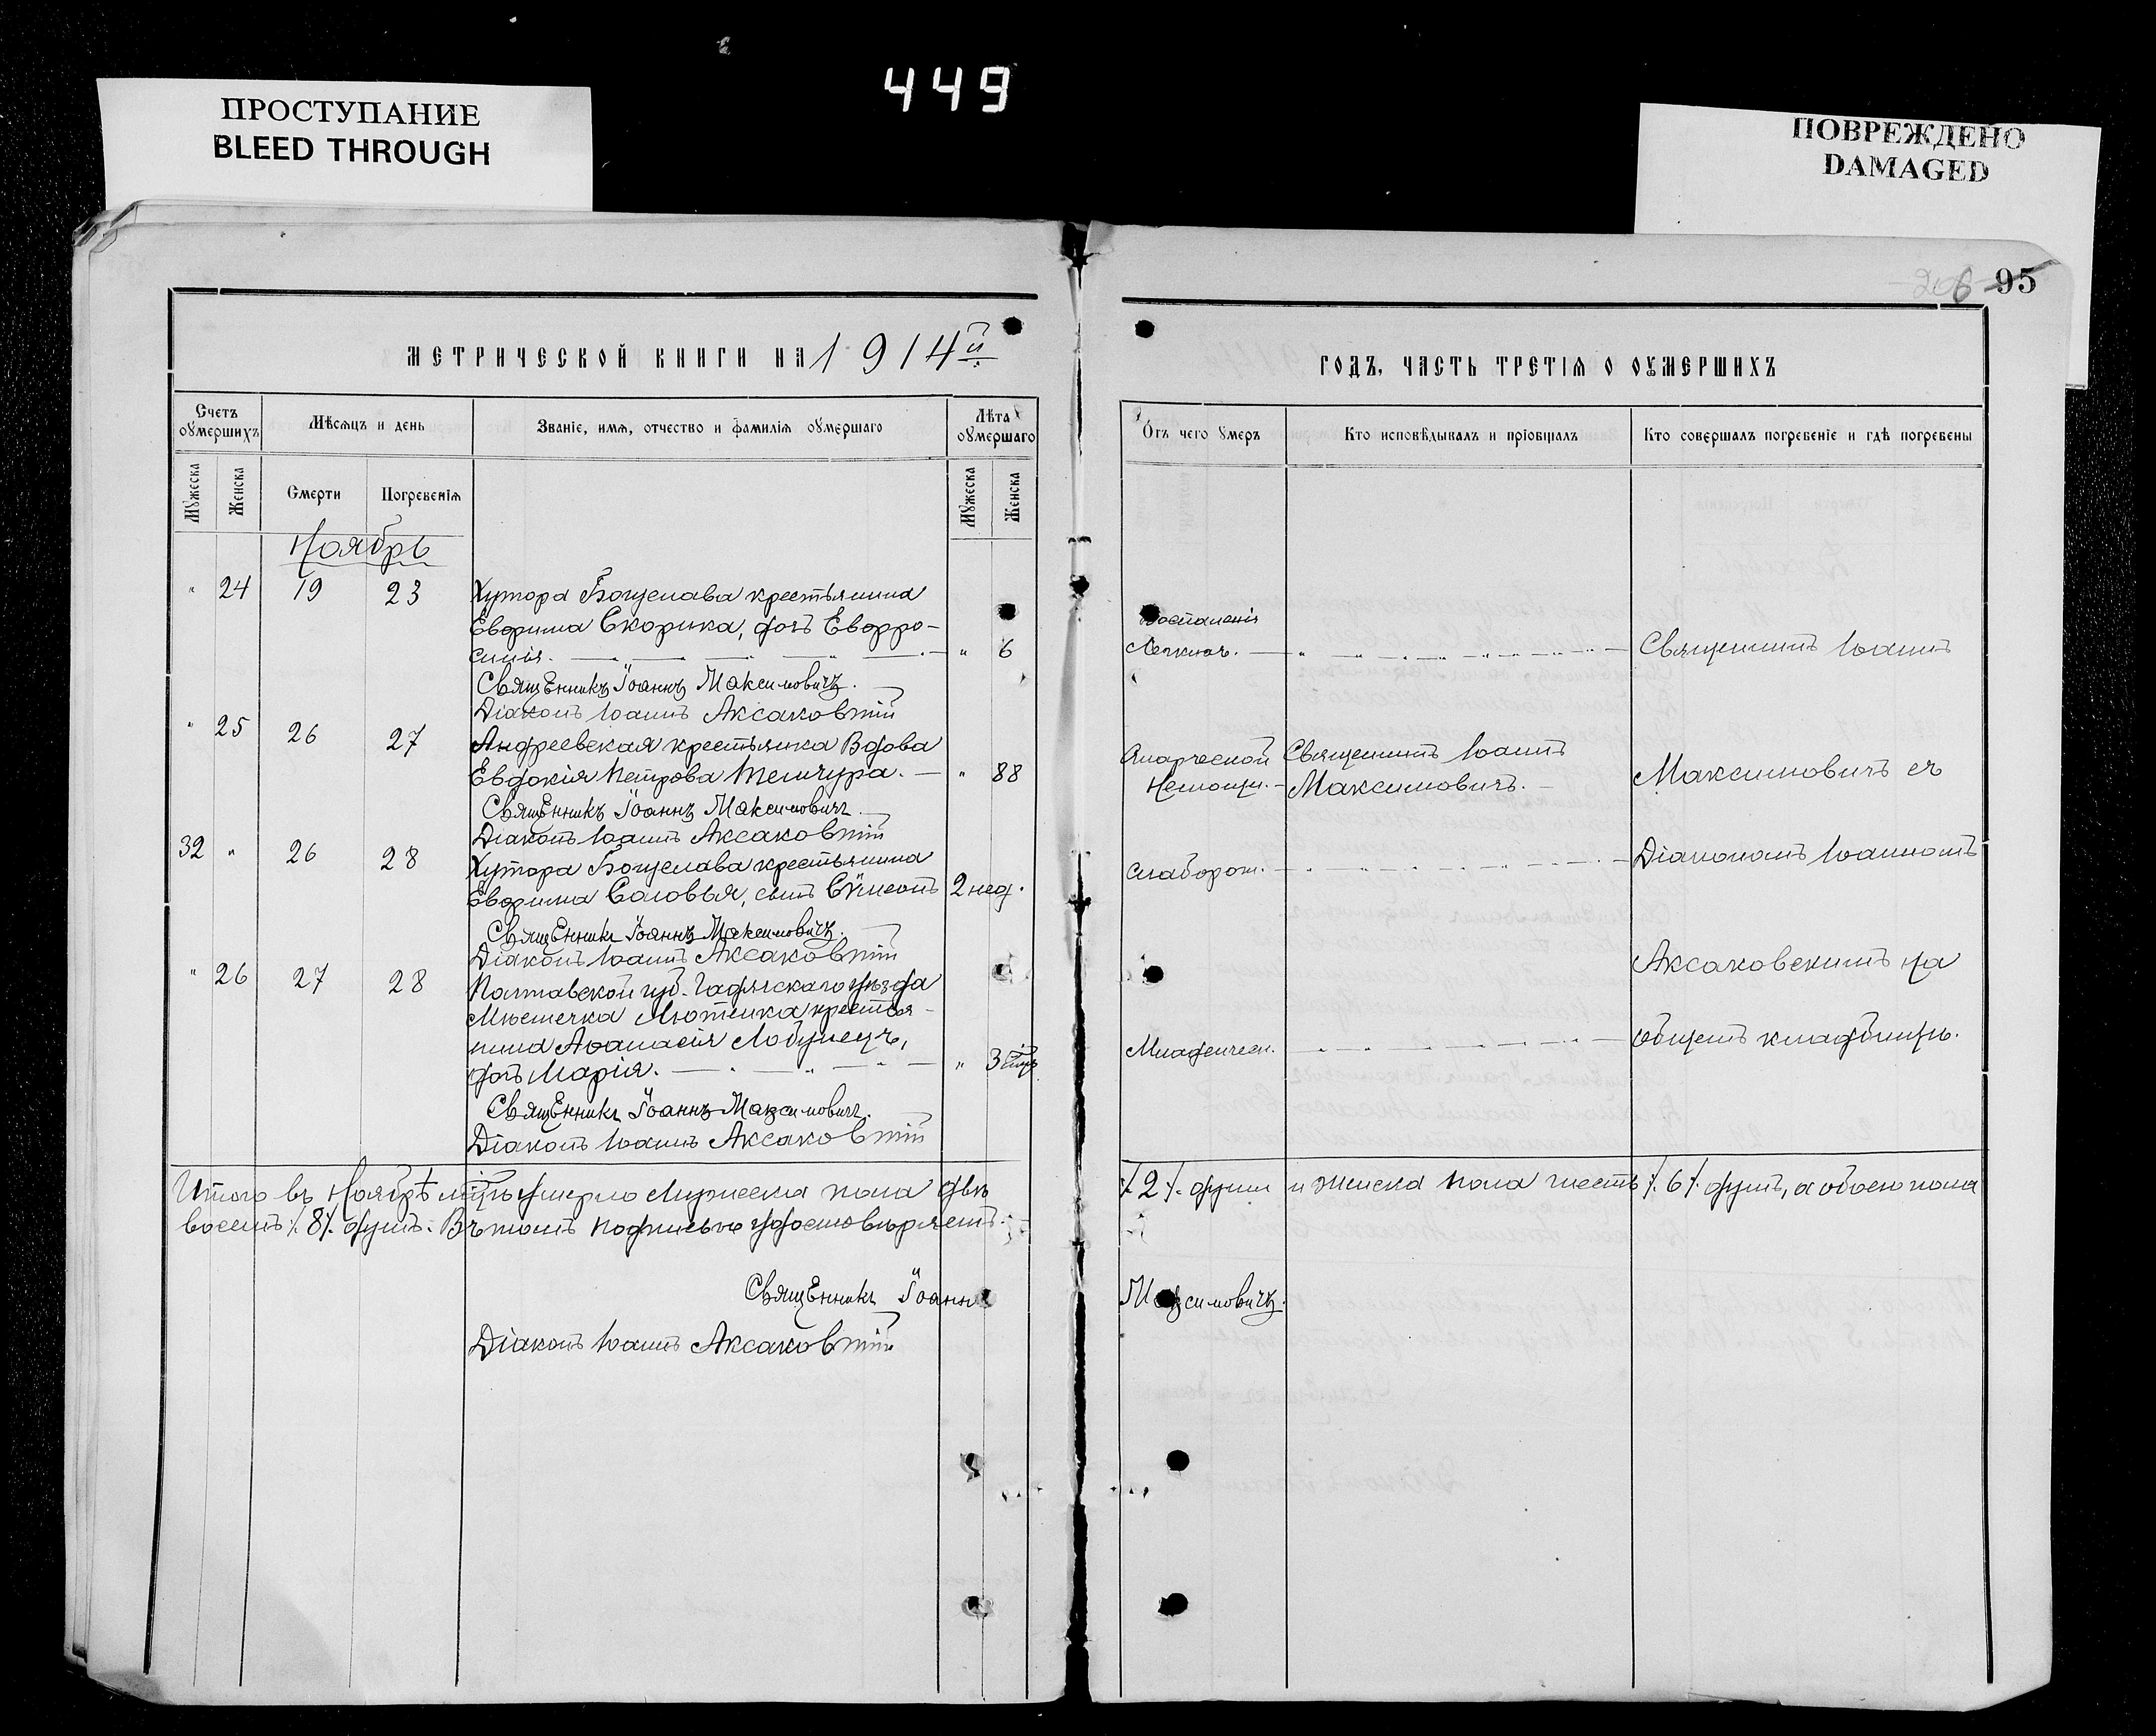 449
ПРОСТУПАНИЕ
BLEED THROUGH
ПОВРЕЖДЕНО
DAMAGED
206 95
МЕТРИЧЕСКОЙ КНИГИ НА 1914й
ГОДЪ, ЧАСТЬ ТРЕТІЯ О ОУМЕРШИХЪ
Счетъ оумершихъ
Мѣсяцъ и день
Званіе, имя, отчество и фамилія оумершаго
Лѣта оумершаго
Отъ чего умеръ
Кто исповѣдывалъ и пріобщалъ
Кто совершалъ погребеніе и гдѣ погребены
Мужеска
Женска
Смерти
Погребенія
Мужеска
Женска
Ноябрь
" 24 19 23 Хутора Богуслава крестьянина
Ефрима Скорика, дочь Евфро-
синія. " 6
Воспаленія
Легкихъ.
Священникъ Іоаннъ
Священникъ Іоаннъ Максимовичъ.
Діаконъ Іоаннъ Аксаковскій
" 25 26 27 Андреевская крестьянка Вдова
Евдокія Петрова " 88
Старческой
Немощи.
Священникъ Іоаннъ
Максимовичъ.
Максимовичъ съ
Священникъ Іоаннъ Максимовичъ.
Діаконъ Іоаннъ Аксаковскій
32 " 26 28 Хутора Богуслава крестьянина
Ефрима Соловья, сынъ Сѵмеонъ 2 нед.
слаборож.
Діакономъ Іоанномъ
Священникъ Іоаннъ Максимовичъ.
Діаконъ Іоаннъ Аксаковскій
" 26 27 28 Полтавской губ. Гадячскаго уѣзда
Мѣстечка Лютенка крестья-
нина Аѳанасія Лобунецъ,
дочь Марія. " 3
Младенческ.
Аксаковскимъ на
общемъ кладбищѣ.
Священникъ Іоаннъ Максимовичъ.
Діаконъ Іоаннъ Аксаковскій
Итого въ Ноябрѣ мцѣ умерло Мужеска пола двѣ /.2/. души и Женска пола шесть /.6/. душъ, а обоего пола
восемь /.8/. душъ. Въ томъ подписью удостовѣряемъ.
Священникъ Іоаннъ Максимовичъ.
Діаконъ Іоаннъ Аксаковскій